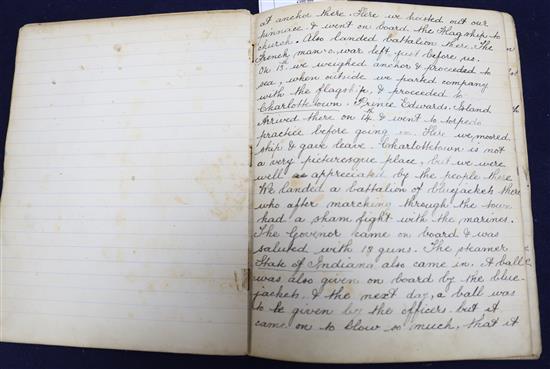 at anchor there. Here we hoisted out our
pinnace & went on board the Flagship to
church. Also landed battalion there. The
French man-o-war left just before us.
On 13th we weighed anchor & proceeded to
sea, when outside we parted company
with the flagship, & proceeded to
Charlottetown. Prince Edwards. Island
Arrived there on 14th & went to torpedo
practice before going in. Here we moored
ship & gave leave. Charlottetown is not
a very picturesque place, but we were
well as appreciated by the people there
We landed a battalion of bluejackets there
who after marching through the town
had a sham fight with the marines.
The Govenor came on board & was
saluted with 18 guns. The steamer
State of Indiana also came in. A ball
was also given on board by the blue-
jackets, & the next day, a ball was
to be given by the officers. but it
came on to blow so much, that it